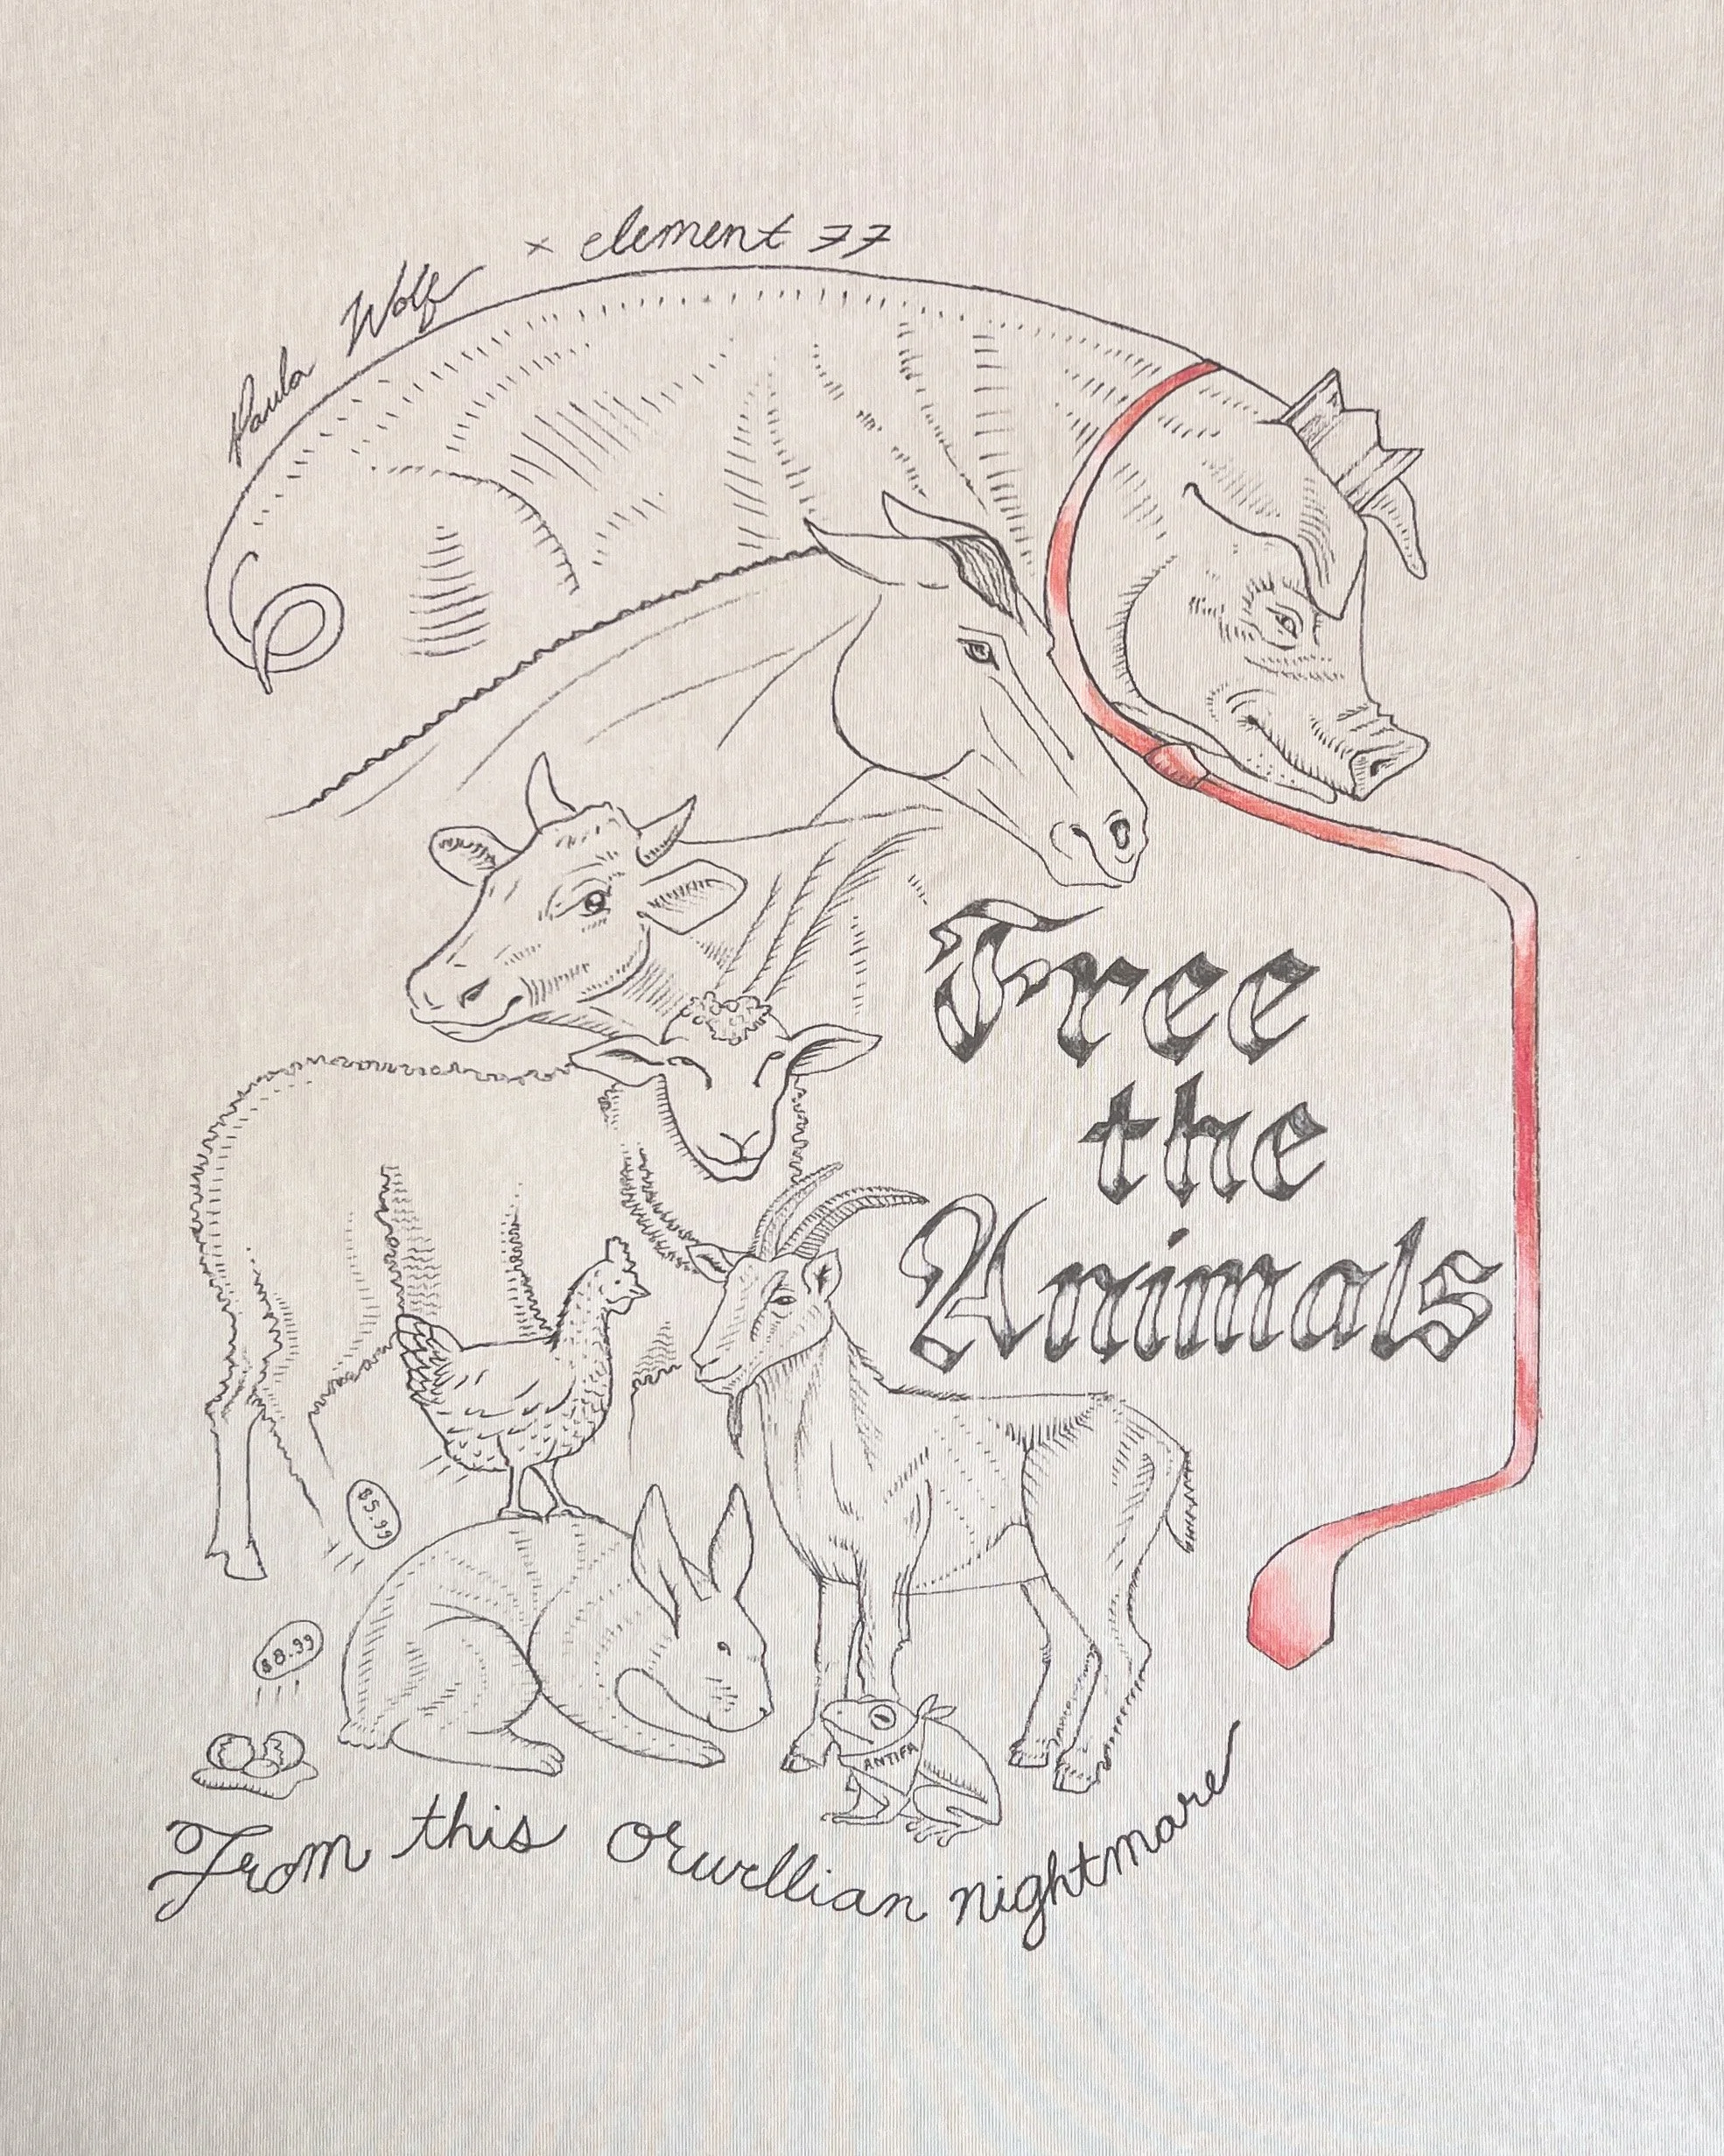 Paula Wolf × element 77
Free
the
Animals
$5.99
$8.99
ANTIFA
From this orwellian nightmare